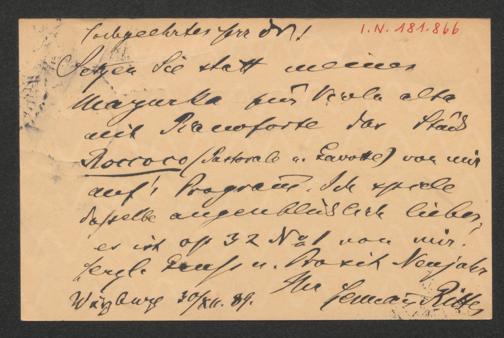 I.N. 181.866
Hochgeehrter Herr Dr!
Setzen Sie statt meines
Mazurka für Viola alta
mit Pianoforte das Stück
Roccoco (Pastorale u. Gavotte) von mir
auf's Program. Ich spiele
dasselbe augenblicklich lieber,
es ist op 32 No 1 von mir.
Herzl. Gruss u. Prosit Neujahr
Ihr Hermann Ritter
Würzburg 30/XII. 89.